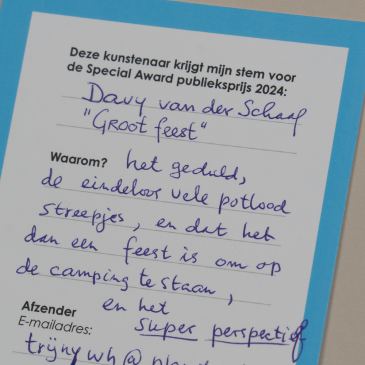 Deze kunstenaar krijgt mijn stem voor
de Special Award publieksprijs 2024:
Davy van der Schaaf
"GROOT feest"
Waarom? het geduld,
de eindeloos vele potlood
streepjes, en dat het
dan een feest is om op
de camping te staan,
en het
Afzender super perspectief
E-mailadres:
trijny wh@